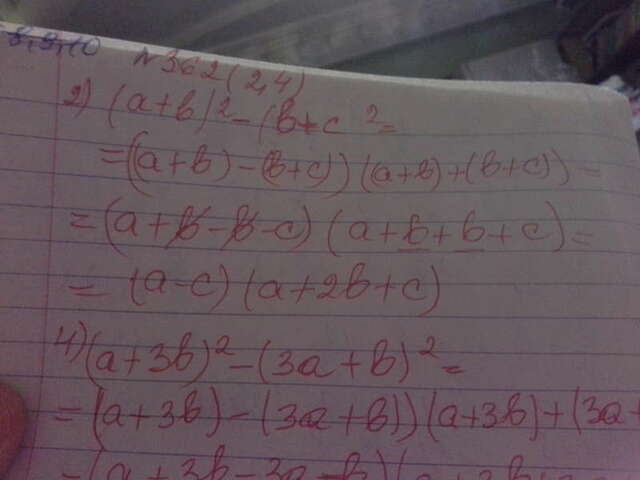 8,9,10
№362(2,4)
2) (a+b)²-(b+c ²=
=((a+b)-(b+c))(a+b)+(b+c))=
=(a+b-b-c)(a+b+b+c)=
=(a-c)(a+2b+c)
4)(a+3b)²-(3a+b)²=
=(a+3b)-(3a+b))(a+3b)+(3a
=(a+3b-3a-b)(